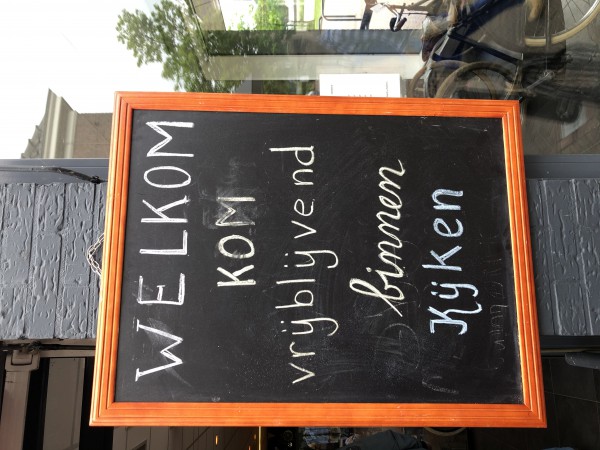 WELKOM
KOM
vrijblijvend
binnen
Kijken